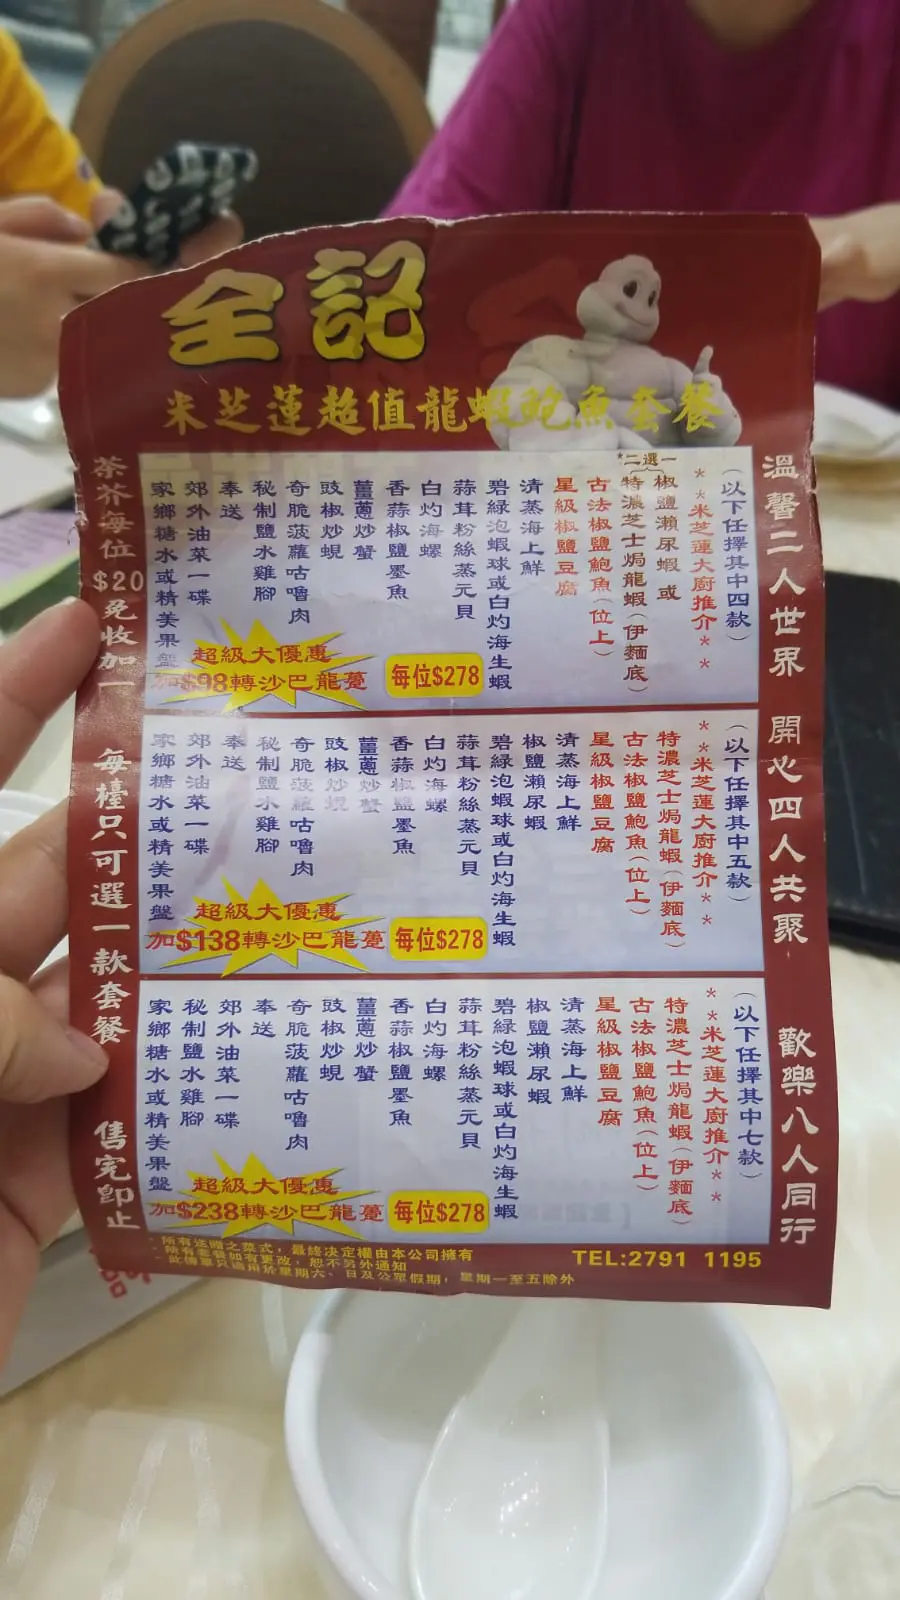 全記
米芝蓮超值龍蝦鮑魚套餐
溫馨二人世界 開心四人共聚 歡樂八人同行
(以下任擇其中四款)
**米芝蓮大廚推介**
*二選一
椒鹽瀨尿蝦 或
特濃芝士焗龍蝦(伊麵底)
古法椒鹽鮑魚(位上)
星級椒鹽豆腐
清蒸海上鮮
碧綠泡蝦球或白灼海生蝦
蒜茸粉絲蒸元貝
白灼海螺
香蒜椒鹽墨魚
薑蔥炒蟹
豉椒炒蜆
奇脆菠蘿咕嚕肉
秘制鹽水雞腳
奉送
郊外油菜一碟
家鄉糖水或精美果盤
超級大優惠
加$98轉沙巴龍躉
每位$278
(以下任擇其中五款)
**米芝蓮大廚推介**
特濃芝士焗龍蝦(伊麵底)
古法椒鹽鮑魚(位上)
星級椒鹽豆腐
清蒸海上鮮
椒鹽瀨尿蝦
碧綠泡蝦球或白灼海生蝦
蒜茸粉絲蒸元貝
白灼海螺
香蒜椒鹽墨魚
薑蔥炒蟹
豉椒炒蜆
奇脆菠蘿咕嚕肉
秘制鹽水雞腳
奉送
郊外油菜一碟
家鄉糖水或精美果盤
超級大優惠
加$138轉沙巴龍躉
每位$278
(以下任擇其中七款)
**米芝蓮大廚推介**
特濃芝士焗龍蝦(伊麵底)
古法椒鹽鮑魚(位上)
星級椒鹽豆腐
清蒸海上鮮
椒鹽瀨尿蝦
碧綠泡蝦球或白灼海生蝦
蒜茸粉絲蒸元貝
白灼海螺
香蒜椒鹽墨魚
薑蔥炒蟹
豉椒炒蜆
奇脆菠蘿咕嚕肉
奉送
郊外油菜一碟
秘制鹽水雞腳
家鄉糖水或精美果盤
超級大優惠
加$238轉沙巴龍躉
每位$278
茶芥每位$20免收加一 每檯只可選一款套餐 售完即止
*所有送贈之菜式，最終決定權由本公司擁有
*所有套餐如有更改，恕不另外通知
*此傳單只適用於星期六、日及公眾假期，星期一至五除外
TEL:2791 1195